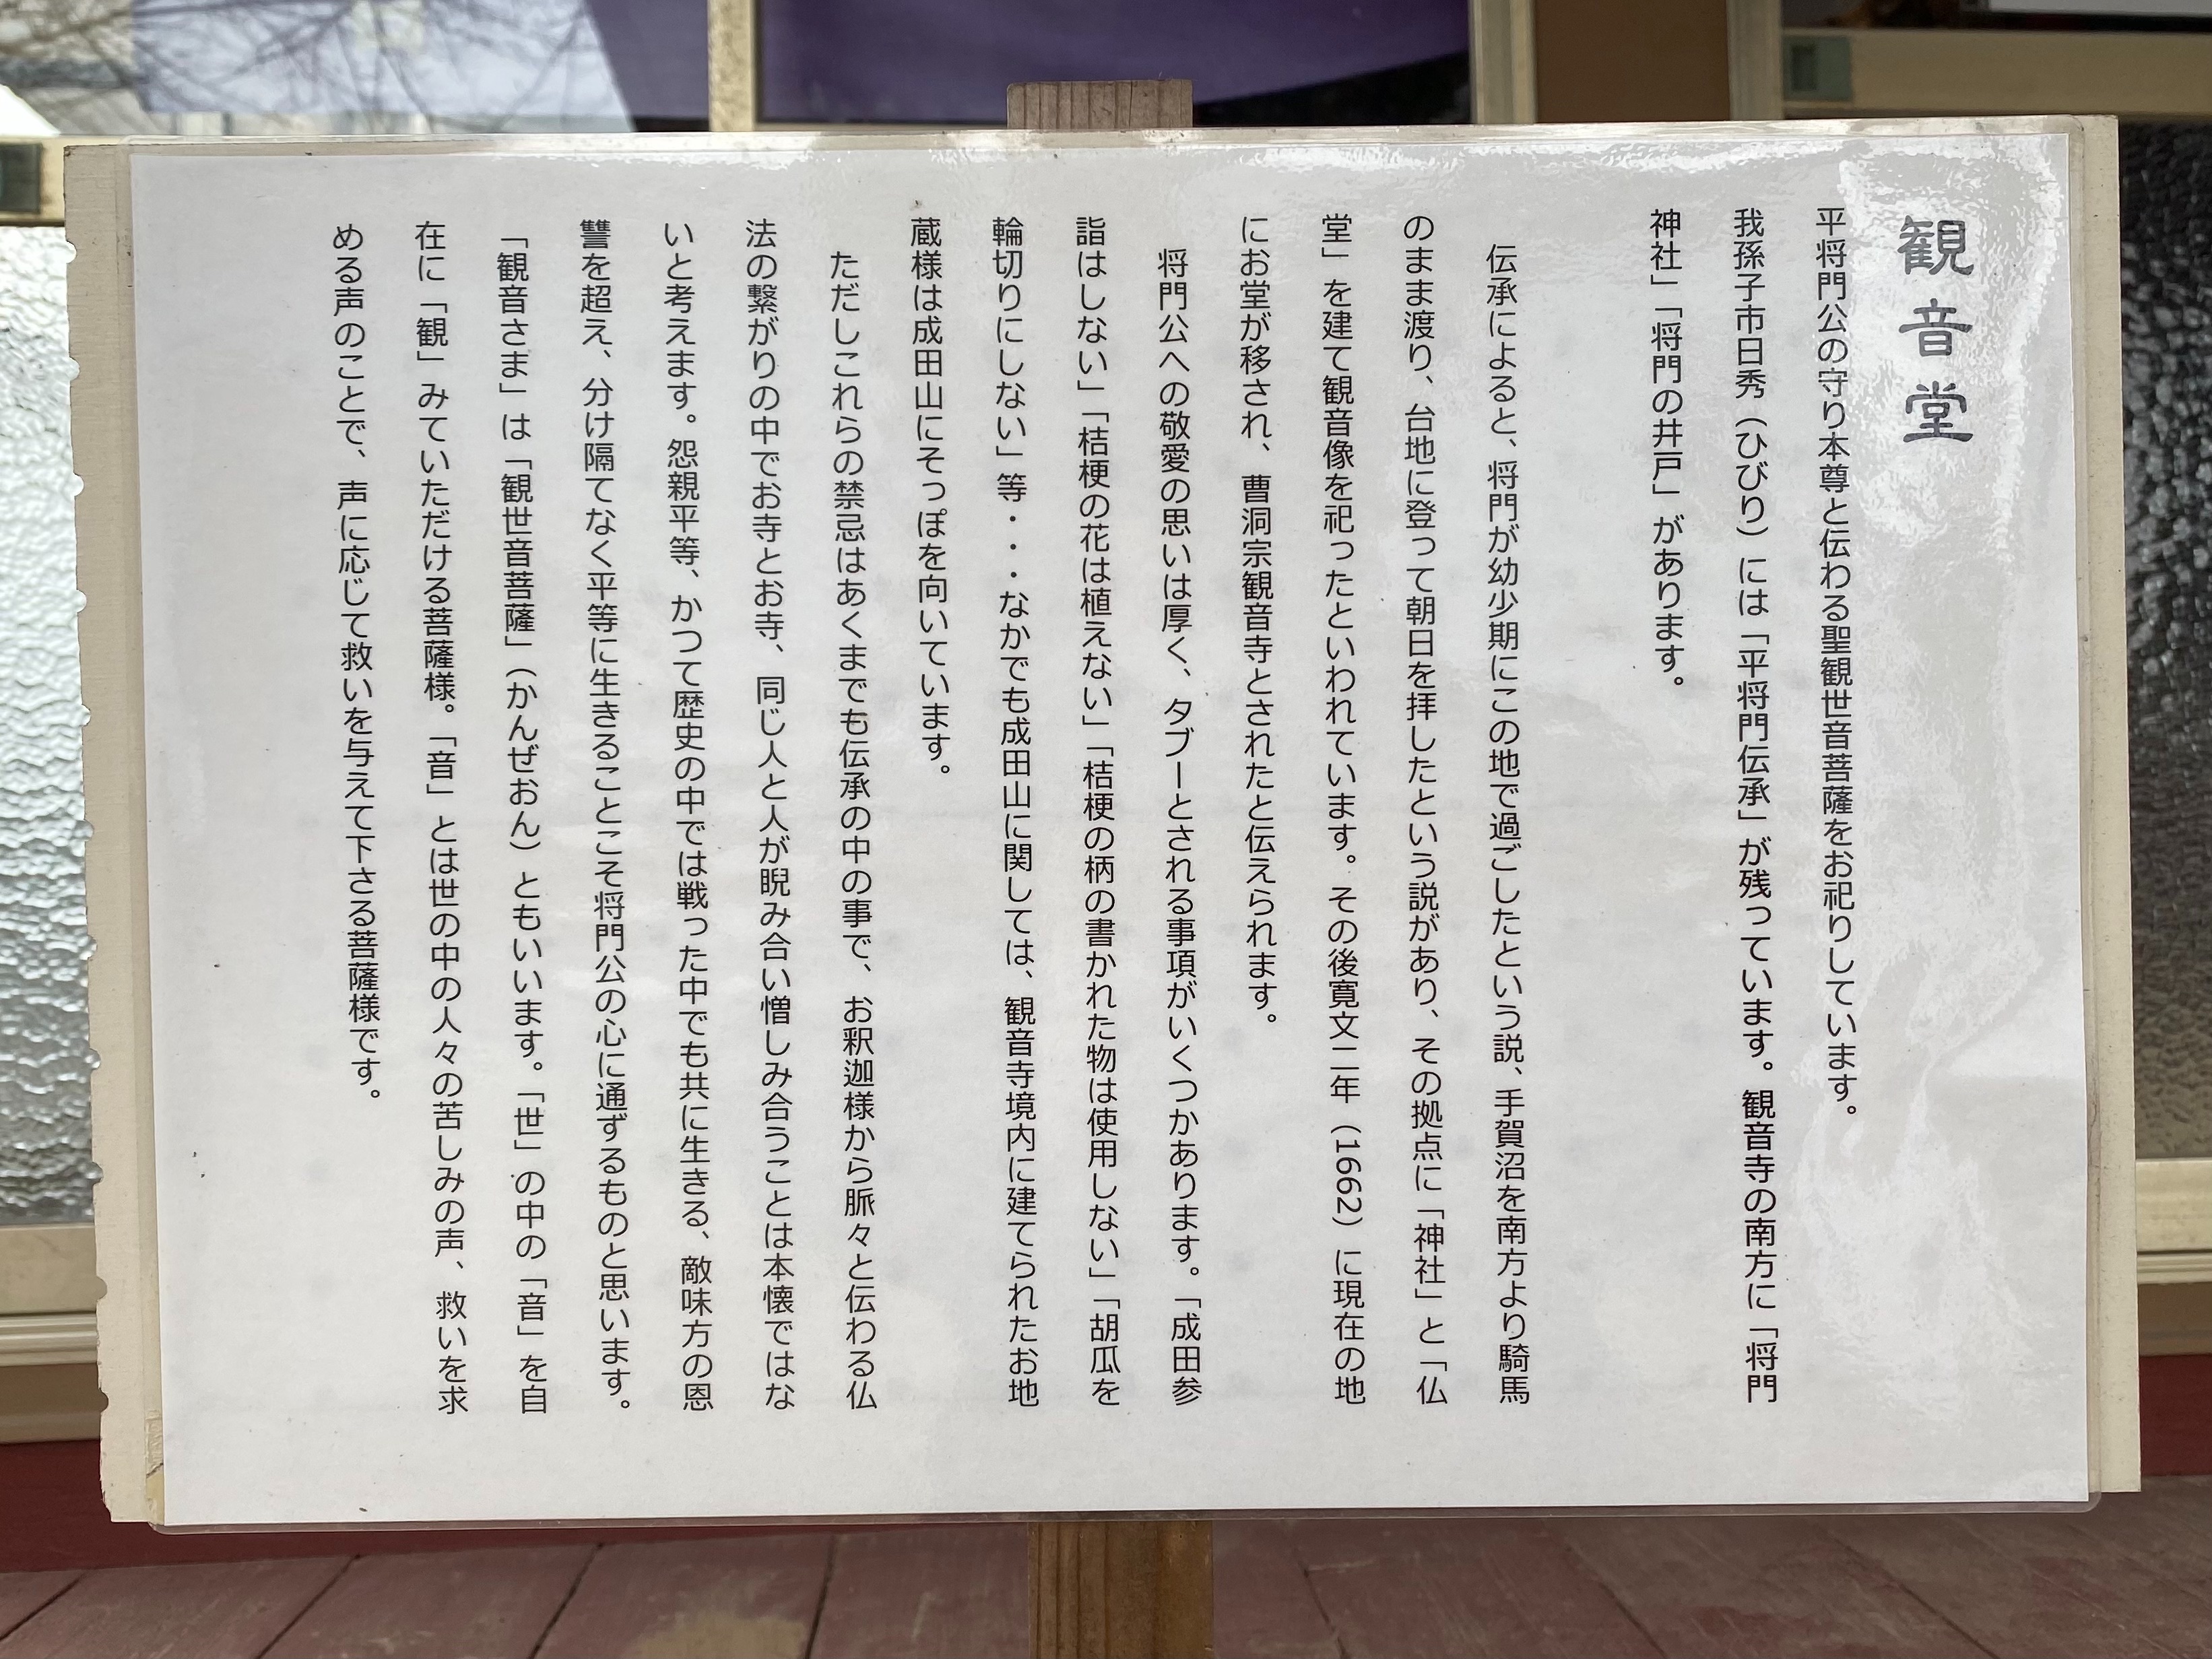 観音堂
平将門公の守り本尊と伝わる聖観世音菩薩をお祀りしています。
我孫子市日秀（ひびり）には「平将門伝承」が残っています。観音寺の南方に「将門
神社」「将門の井戸」があります。
伝承によると、将門が幼少期にこの地で過ごしたという説、手賀沼を南方より騎馬
のまま渡り、台地に登って朝日を拝したという説があり、その拠点に「神社」と「仏
堂」を建て観音像を祀ったといわれています。その後寛文二年（1662）に現在の地
にお堂が移され、曹洞宗観音寺とされたと伝えられます。
将門公への敬愛の思いは厚く、タブーとされる事項がいくつかあります。「成田参
詣はしない」「桔梗の花は植えない」「桔梗の柄の書かれた物は使用しない」「胡瓜を
輪切りにしない」等・・・なかでも成田山に関しては、観音寺境内に建てられたお地
蔵様は成田山にそっぽを向いています。
ただしこれらの禁忌はあくまでも伝承の中の事で、お釈迦様から脈々と伝わる仏
法の繋がりの中でお寺とお寺、同じ人と人が睨み合い憎しみ合うことは本懐ではな
いと考えます。怨親平等、かつて歴史の中では戦った中でも共に生きる、敵味方の恩
讐を超え、分け隔てなく平等に生きることこそ将門公の心に通ずるものと思います。
「観音さま」は「観世音菩薩」（かんぜおん）ともいいます。「世」の中の「音」を自
在に「観」みていただける菩薩様。「音」とは世の中の人々の苦しみの声、救いを求
める声のことで、声に応じて救いを与えて下さる菩薩様です。